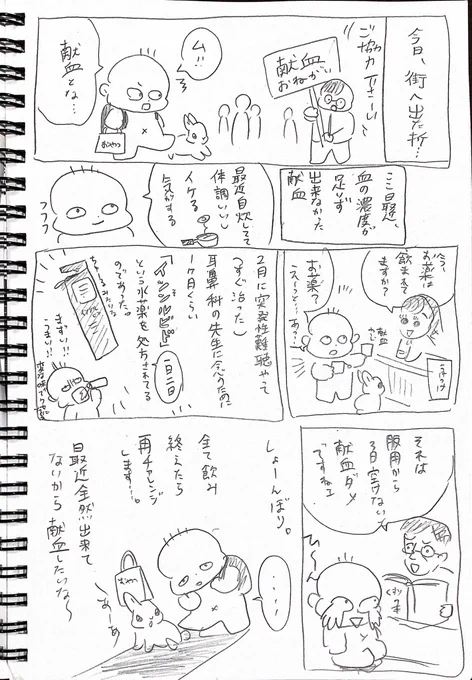 今日、街へ出た所…
ご協力
下さーい
献血
おねがい
ム!!
献血とな…
おやつ
ここ最近、
血の濃度が
足りず
出来なかった
献血
最近自炊してて
体調いいし
イケる
気がする
フフフ
今、
お薬は
飲まれて
ますか?
お薬?
えーっと…あ…
2月に突発性難聴やって
(すぐ治った)
耳鼻科の先生に念のために
1ヶ月くらい
「イソソルビド」
という水薬を処方されてる
のであった。
一日二回
まずい!!
うまい!!
それは
服用から
3日空けないと
献血ダメ
ですねェ
ひーん
しょーんぼり。
全て飲み
終えたら
再チャレンジ
します…。
・・・!
おやつ
最近全然出来て
ないから献血したいな〜